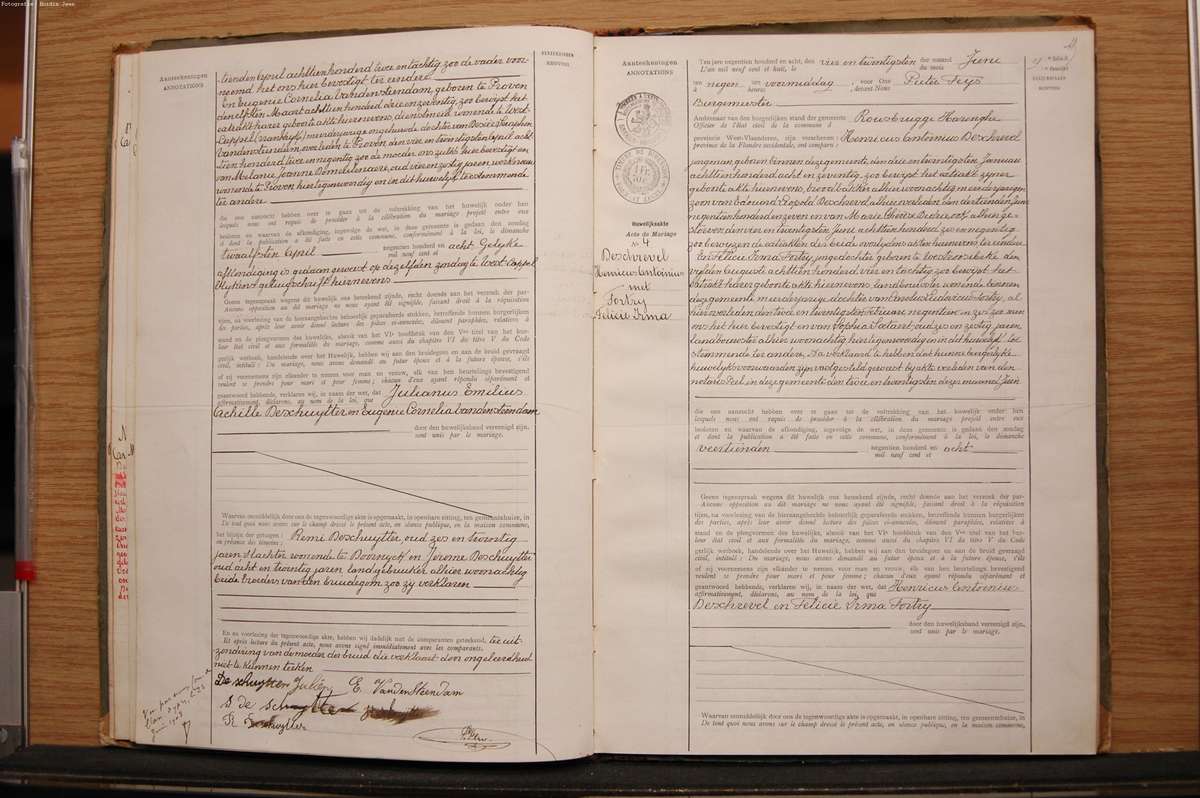 Fotografie: Bordin Jean
Aanteekeningen
ANNOTATIONS
tienden April achttienhonderd twee en tachtig zoo de vader voor-
noemd het ons hier bevestigt ter eendere
En Eugenie Cornelia Vandensteendam, geboren te Proven
den elfsten Maart achttien honderd drie en zestig, zoo bewijst het
extrakt harer geboorte akte hiernevens, dienstmeid, wonende te West-
Cappel (Frankrijk) meerderjarige ongehuwde dochter van
Vandensteendam overleden te Proven den vier en twintigsten April acht-
tien honderd twee en negentig zoo de moeder ons zulks hier bevestigt en
van Melanie Joanne Demeulenaere, oud vier en zestig jaren, werkvrouw
wonende te Proven hier tegenwoordig en in dit huwelijk toestemmende
ter andere
die ons aanzocht hebben over te gaan tot de voltrekking van het huwelijk onder hen
lesquels nous ont requis de procéder à la célébration du mariage projeté entre eux
besloten en waarvan de afkondiging, ingevolge de wet, in deze gemeente is gedaan den zondag
et dont la publication a été faite en cette commune, conformément à la loi, le dimanche
twaalfsten April negentien honderd en acht. Gelyke
mil neuf cent et
afkondiging is gedaan geweest op dezelfden zondag te West-Cappel
blykens getuigschrift hiernevens
Geene tegenspraak wegens dit huwelijk ons beteekend zijnde, recht doende aan het verzoek der par-
Aucune opposition au dit mariage ne nous ayant été signifiée, faisant droit à la réquisition
tijen, na voorlezing van de hieraangehechte behoorlijk geparafeerde stukken, betreffende hunnen burgerlijken
des parties, après leur avoir donné lecture des pièces ci-annexées, dûment paraphées, relatives à
stand en de plegvormen des huwelijks, alsook van het VIe hoofdstuk van den Ven titel van het bur-
leur état civil et aux formalités du mariage, comme aussi du chapitre VI du titre V du Code
gerlijk wetboek, handelende over het Huwelijk, hebben wij aan den bruidegom en aan de bruid gevraagd
civil, intitulé : Du mariage, nous avons demandé au futur époux et à la future épouse, s'ils
of zij voornemens zijn elkander te nemen voor man en vrouw, elk van hen beurtelings bevestigend
veulent se prendre pour mari et pour femme; chacun d'eux ayant répondu séparément et
geantwoord hebbende, verklaren wij, in naam der wet, dat Julianus Emilius
affirmativement, déclarons, au nom de la loi, que
Achille Deschuytter en Eugenie Cornelia Vandensteendam
door den huwelijksband vereenigd zijn.
sont unis par le mariage.
Waarvan onmiddellijk door ons de tegenwoordige akte is opgemaakt, in openbare zitting, ten gemeentehuize, in
De tout quoi nous avons sur le champ dressé le présent acte, en séance publique, en la maison commune,
het bijzijn der getuigen : Remi Deschuytter, oud zes en twintig
en présence des témoins :
jaren slachter wonende te en Jerome Deschuytter
oud acht en twintig jaren landgebruiker alhier woonachtig
beide broeders van den bruidegom zoo zy verklaren
En na voorlezing der tegenwoordige akte, hebben wij dadelijk met de comparanten geteekend, ter uit-
Et après lecture du présent acte, nous avons signé immédiatement avec les comparants.
zondering van de moeder der bruid die verklaart door ongeleerdheid
niet te kunnen teeken
De schuytter Julien E. Vandensteendam
J. De schuytter
R. Deschuytter
KANTTEEKENINGEN
RENVOIS
Aanteekeningen
ANNOTATIONS
Huwelijksakte
Acte de Mariage
No 4
Deschrevel
Henricus Antonius
met
Fortry
Felicie Irma
Ten jare negentien honderd en acht, den vier en twintigsten der maand Juni
L'an mil neuf cent et huit, le du mois
ten negen ure voormiddag, voor Ons Pieter Feys
à heures devant Nous
Burgemeester
Ambtenaar van den burgerlijken stand der gemeente Rousbrugge Haringhe
Officier de l'état civil de la commune à
provincie West-Vlaanderen, zijn verschenen : Henricus Antonius Deschrevel
province de la Flandre occidentale, ont comparu :
jongman geboren binnen deze gemeente den drie en twintigsten Januari
achttienhonderd acht en zeventig, zoo bewijst het extrakt zyner
geboorte akte hiernevens, broodbakker alhier woonachtig meerderjarigen
zoon van Edouard Leopold Deschrevel, alhier overleden den dertienden Juni
negentienhonderd en zeven en van Marie Thérèse alhier ge-
storven den vier en twintigsten Juni achttienhonderd zes en negentig
zoo bewyzen de extrakten des beide overlydens akten hiernevens ter eendere
En Felicie Irma Fortry jonge dochter geboren te den
vijfden Augusti achttien honderd vier en tachtig zoo bewijst het
extrakt harer geboorte akte hiernevens, landbouwster wonende binnen
deze gemeente meerderjarige dochter van Fortry, al-
hier overleden den twee en twintigsten Februari negentien en zes zoo men
ons het hier bevestigt en van Sophia oud zes en zestig jaren
landbouwster alhier woonachtig hier tegenwoordig en in dit huwelijk toe-
stemmende ter andere. Na verklaard te hebben dat hunne burgerlijke
huwelijksvoorwaarden zijn vastgesteld geweest by akte verleden van den
notaris in deze gemeente den twee en twintigsten dezer maand Juni
die ons aanzocht hebben over te gaan tot de voltrekking van het huwelijk onder hen
lesquels nous ont requis de procéder à la célébration du mariage projeté entre eux
besloten en waarvan de afkondiging, ingevolge de wet, in deze gemeente is gedaan den zondag
et dont la publication a été faite en cette commune, conformément à la loi, le dimanche
veertienden negentien honderd en acht
mil neuf cent et
Geene tegenspraak wegens dit huwelijk ons beteekend zijnde, recht doende aan het verzoek der par-
Aucune opposition au dit mariage ne nous ayant été signifiée, faisant droit à la réquisition
tijen, na voorlezing van de hieraangehechte behoorlijk geparafeerde stukken, betreffende hunnen burgerlijken
des parties, après leur avoir donné lecture des pièces ci-annexées, dûment paraphées, relatives à
stand en de plegvormen des huwelijks, alsook van het VIe hoofdstuk van den Ven titel van het bur-
leur état civil et aux formalités du mariage, comme aussi du chapitre VI du titre V du Code
gerlijk wetboek, handelende over het Huwelijk, hebben wij aan den bruidegom en aan de bruid gevraagd
civil, intitulé : Du mariage, nous avons demandé au futur époux et à la future épouse, s'ils
of zij voornemens zijn elkander te nemen voor man en vrouw, elk van hen beurtelings bevestigend
veulent se prendre pour mari et pour femme; chacun d'eux ayant répondu séparément et
geantwoord hebbende, verklaren wij, in naam der wet, dat Henricus Antonius
affirmativement, déclarons, au nom de la loi, que
Deschrevel en Felicie Irma Fortry
door den huwelijksband vereenigd zijn.
sont unis par le mariage.
Waarvan onmiddellijk door ons de tegenwoordige akte is opgemaakt, in openbare zitting, ten gemeentehuize, in
De tout quoi nous avons sur le champ dressé le présent acte, en séance publique, en la maison commune,
KANTTEEKENINGEN
RENVOIS